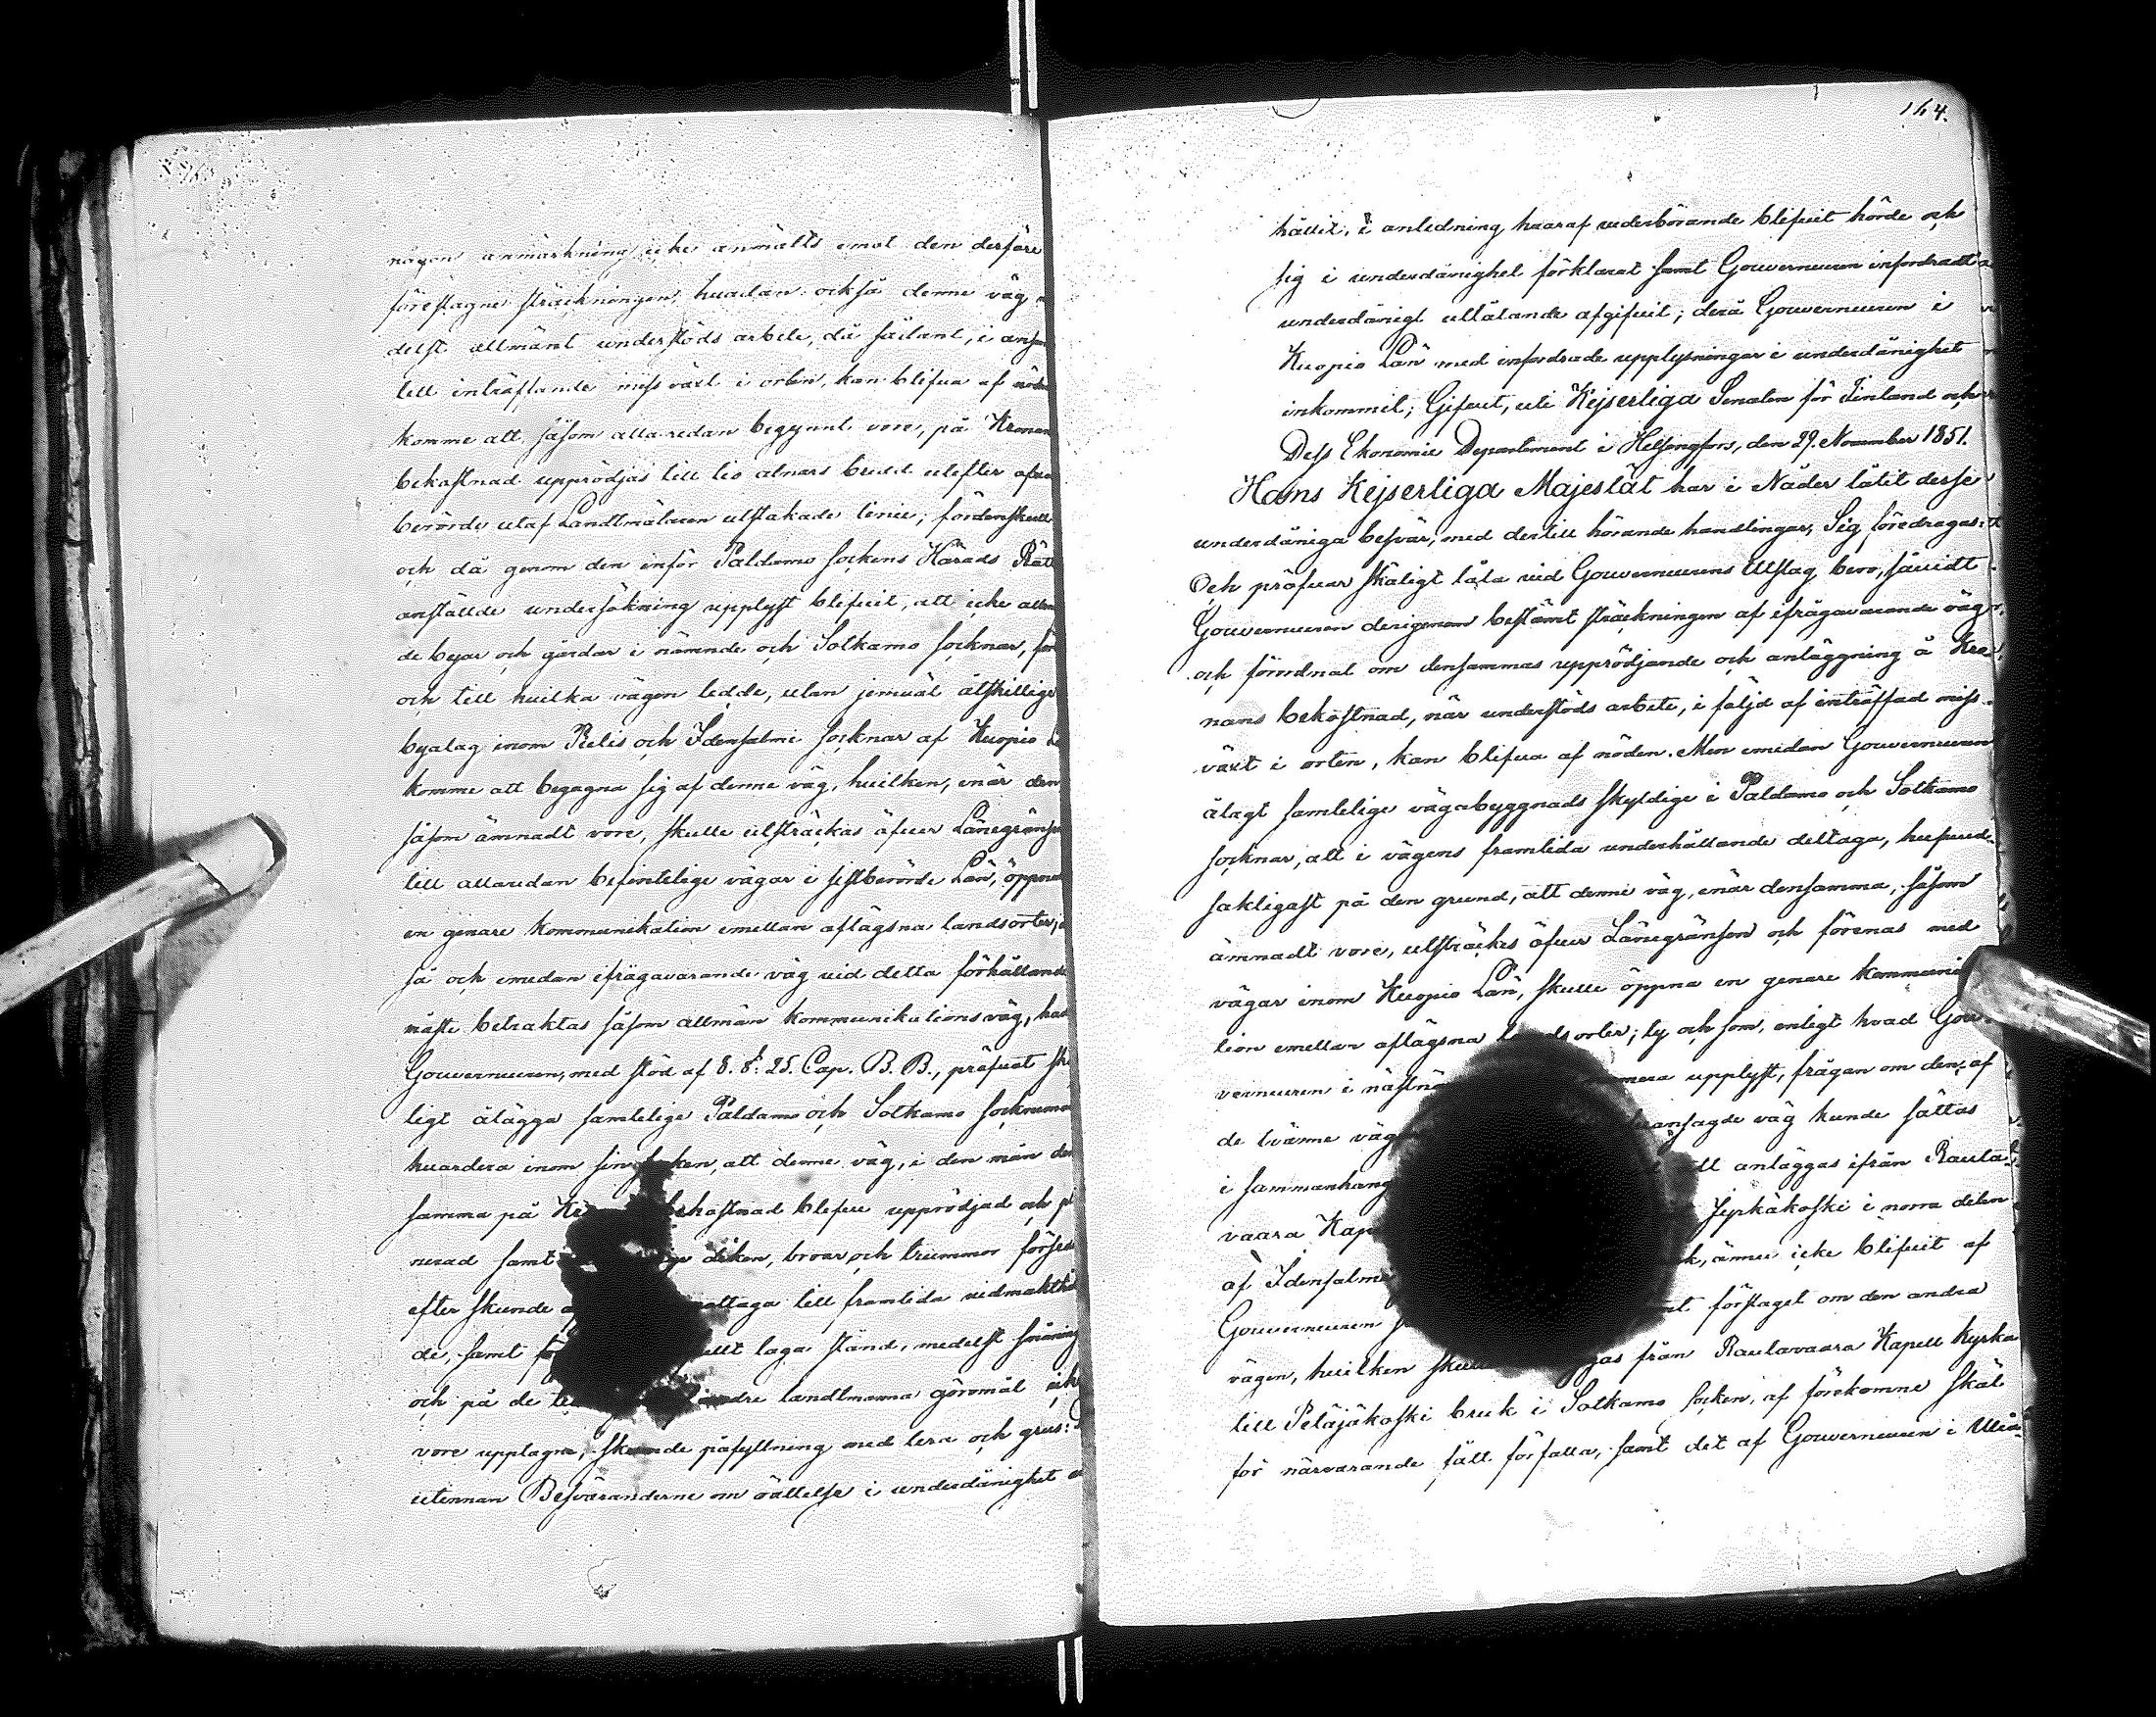 någon anmärkning icke anmälts emot den derföre
föreslagne sträckningen, hvadan också denne väg
delst allmänt understöds arbete, då sådant, i anse
till inträffande miss växt i orten, kan blifva af nöde
komme att såsom allaredan begynnt vore, på Kronan
bekostnad upprödjas till tio alnars bredd utefter ofvan
berörde utaf Landtmätaren utstakade linie; fördenskull
och då genom den inför Paldamo sockens Härads Rätt
anställde undersökning upplyst blifvit, att icke allen
de byar och gårdar i nämnde och Sotkamo socknar, från
och till hvilka vägen ledde, utan jemväl åtskillige
byalag inom Pielis och Idensalmi socknar af Kuopio
komme att begagna sig af denne väg, hvilken, enär den
såsom ämnadt vore, skulle utsträckas öfver Länegränsen
till allaredan befintelige vägar i sistberörde Län, öppna
en genare kommunikation emellan aflägsna landsorter;
så och emedan ifrågavarande väg vid detta förhållande
måste betraktas såsom allmän kommunikations väg, had
Gouverneuren, med stöd af 8. §. 25. Cap. B. B., pröfvat skä
ligt ålägga samtelige Paldamo och Sotkamo socknemän
hvardera inom sin socken, att denne väg, i den mån den
samma på bekostnad blefve upprödjad och
nerad samt diken, broar och trummor försed
efter skeende till framtida vidmakthål
de, samt laga stånd, medelst
och på de andre landtmanna göromål icke
vore upptagne, skeende påfyllning med lera och grus:
utinnan Besväranderne om rättelse i underdånighet

164.
hållit, i anledning hvaraf vederbörande blifvit hörde och
sig i underdånighet förklarat samt Gouverneuren infordradt
underdånigt utlåtande afgifvit; derå Gouverneuren i
Kuopio Län med infordrade upplysningar i underdånighet
inkommit; Gifvit, uti Kejserliga Senaten för Finland och
Dess Ekonomie Departement i Helsingfors, den 29. November 1851.
Hans Kejserliga Majestät har i Nåder låtit desse
underdåniga besvär, med dertill hörande handlingar, Sig föredragas:
Och pröfvar skäligt låta vid Gouverneurens Utslag bero, såvidt
Gouverneuren derigenom bestämt sträckningen af ifrågavarande väg
och förordnat om densammas upprödjande och anläggning å Kro-
nans bekostnad, när understöds arbete, i följd af inträffad miss
växt i orten, kan blifva af nöden. Men emedan Gouverneuren
ålagt samtelige vägabyggnads skyldige i Paldamo och Sotkamo
socknar, att i vägens framtida underhållande deltaga, hufvud-
sakligast på den grund, att denne väg, enär densamma, såsom
ämnadt vore, utsträckes öfver Länegränsen och förenas med
vägar inom Kuopio Län, skulle öppna en genare kommunika
tion emellan aflägsna landsorter; ty och som, enligt hvad Gou-
verneuren i upplyst, frågan om den, af
de tvänne väg väg kunde sättas
i sammanhang anläggas ifrån Rauta-
vaara Kap Jyrkäkoski i norra delen
af Idensalmi ännu icke blifvit af
Gouverneuren förslaget om den andra
vägen, hvilken skulle från Rautavaara Kapell Kyrka
till Petäjäkoski bruk i Sotkamo socken, af förekomne skäl
för närvarande fått förfalla, samt det af Gouverneuren i Uleå-